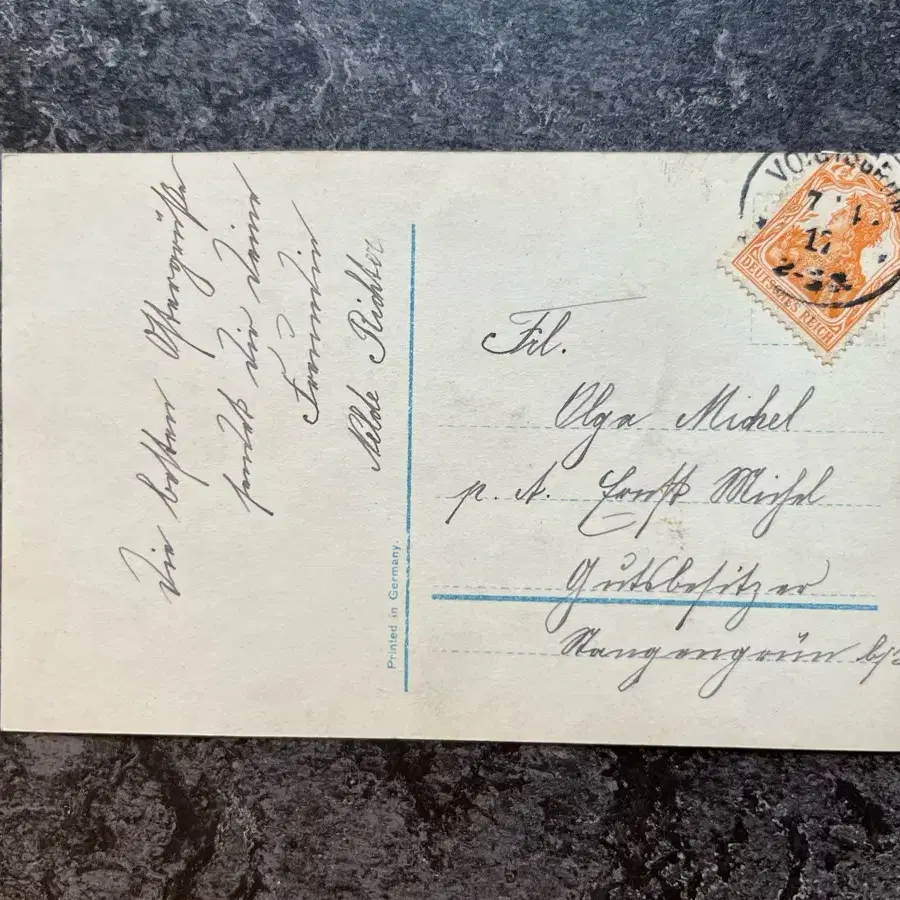 Die besten Ostergrüße
sendet Dir Deine
Freundin
Nelde Richter
Printed in Germany.
VOIGTSGRÜN
17
DEUTSCHES REICH
Frl.
Olga Michel
p. A. Ernst Michel
Gutsbesitzer
Stangengrün b/